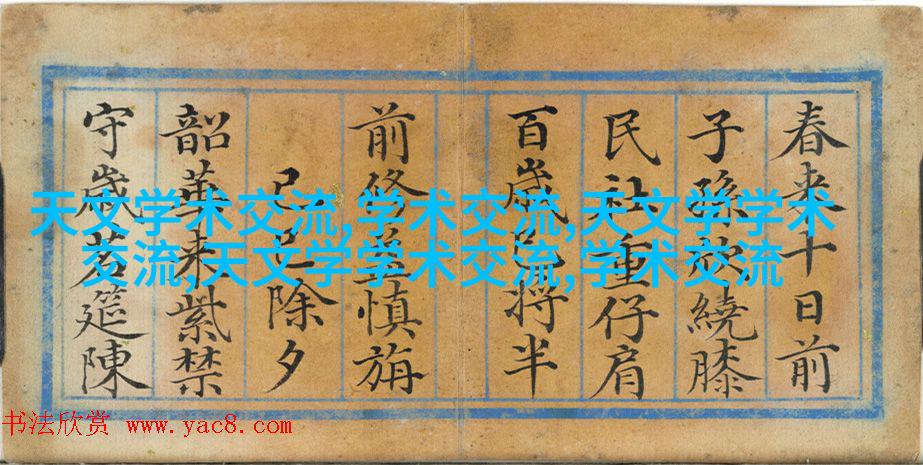 春来十日前
子孫欣繞膝
民社重仔肩
百歲将半
前修益慎旃
己除夕
韶華来紫禁
守歲茗筵陳
天文学术交流,学术交流,天文学学术
交流,天文学学术交流,学术交流
书法欣赏 www.yac8.com